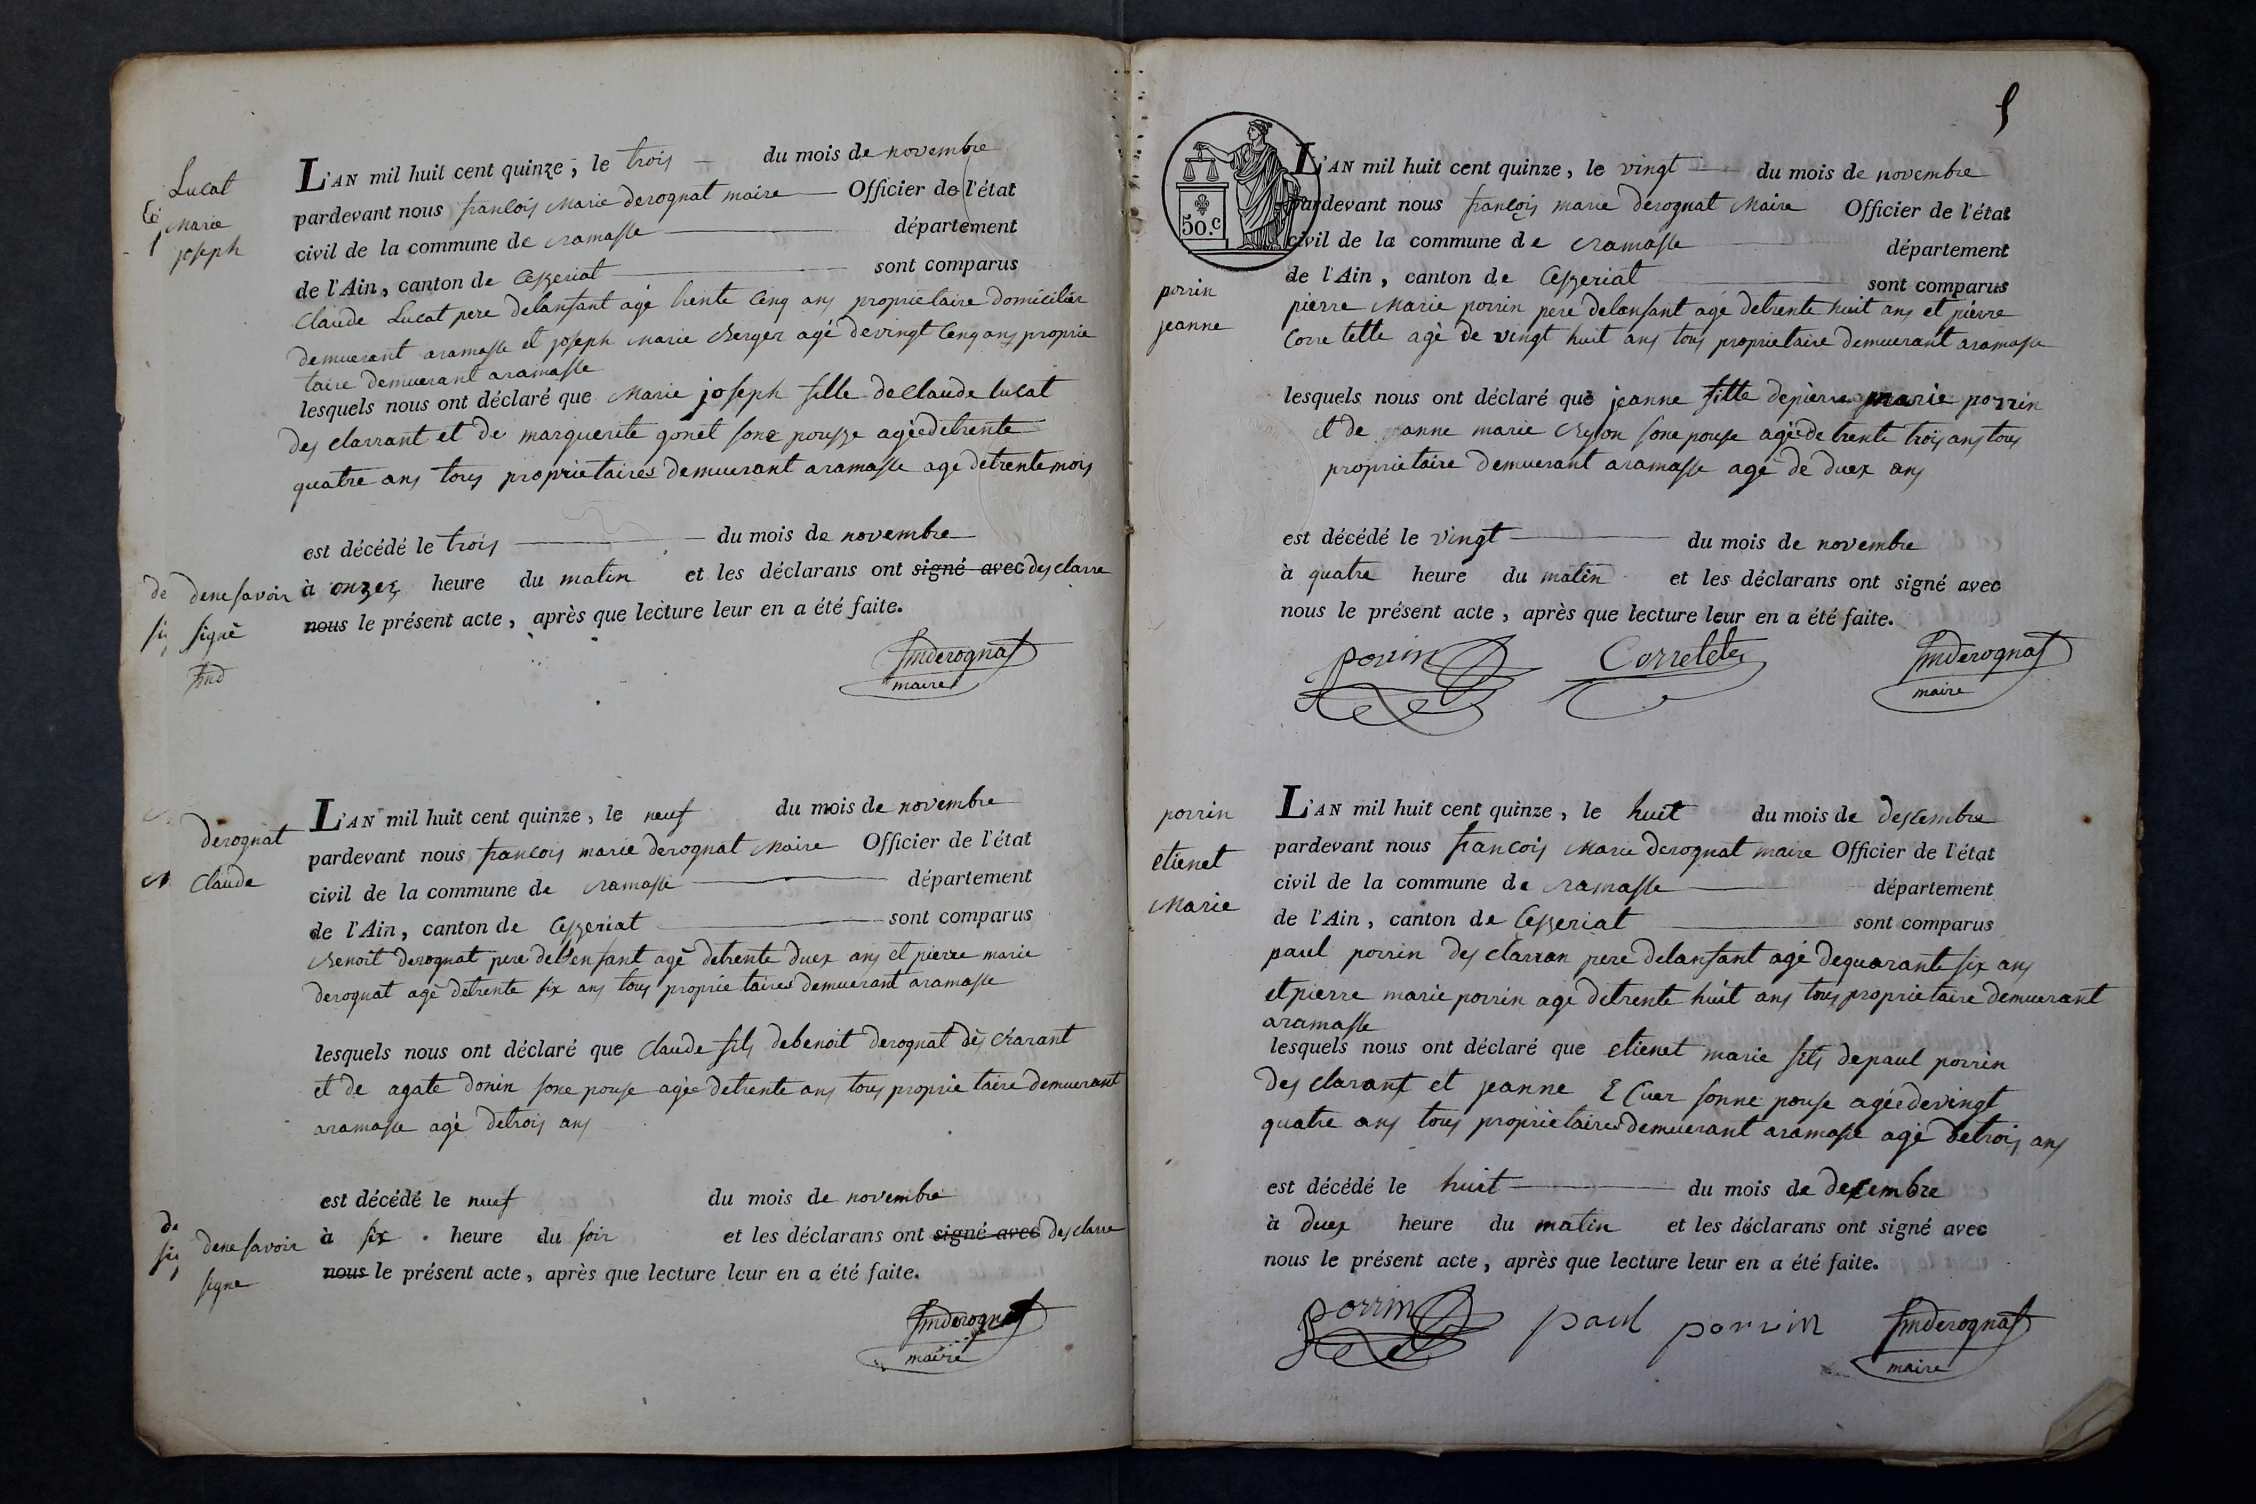 Lucat
Marie
joseph
L'AN mil huit cent quinze, le trois du mois de novembre
pardevant nous francois Marie derognat maire Officier de l'état
civil de la commune de ramasse département
de l'Ain, canton de Ceyzeriat sont comparus
Claude Lucat pere delansant agé trente Cenq ans proprietaire domicilier
demuerant aramasse et joseph Marie Berger agé devingt Cenq ans proprie
taire demuerant aramasse
lesquels nous ont déclaré que Marie joseph fille declaude lucat
des clarrant et de marguerite gonet sone pousze agéedetrente
quatre ans tous proprietaires demuerant aramasse age detrente mois
est décédé le trois du mois de novembre
à onzes heure du matin et les déclarans ont signé avec des clarre
nous le présent acte, après que lecture leur en a été faite.
de dene savoir
si signé
fmd
fmderognat
maire
derognat
Claude
L'AN mil huit cent quinze, le neuf du mois de novembre
pardevant nous francois marie derognat Maire Officier de l'état
civil de la commune de ramasse département
de l'Ain, canton de Ceyzeriat sont comparus
Benoit derognat pere delenfant agé detrente duex ans et pierre marie
derognat agé detrente six ans tous proprietaires demuerant aramasse
lesquels nous ont déclaré que Claude fils debenoit derognat dès charant
et de agate donin sone pouse agée detrente ans tous proprie taire demuerant
aramasse agé detrois ans
est décédé le nuef du mois de novembre
à six heure du soir et les déclarans ont signé avec des clarre
nous le présent acte, après que lecture leur en a été faite.
de
si dene savoir
signe
fmderognat
maire
5
50.c
porrin
jeanne
L'AN mil huit cent quinze, le vingt du mois de novembre
pardevant nous françois marie derognat Maire Officier de l'état
civil de la commune de ramasse département
de l'Ain, canton de Ceyzeriat sont comparus
pierre Marie porrin pere delansant agé detrente huit ans et piérre
Corre tette agè de vingt huit ans tous proprietaire demuerant aramasse
lesquels nous ont déclaré que jeanne fille depierre marie porrin
et de janne marie sone pouse agéede trente trois ans tous
proprietaire demuerant aramasse agé de duex ans
est décédé le vingt du mois de novembre
à quatre heure du matin et les déclarans ont signé avec
nous le présent acte, après que lecture leur en a été faite.
porrin Corretete fmderognat
maire
porrin
etienet
Marie
L'AN mil huit cent quinze, le huit du mois de descembre
pardevant nous francois Marie derognat maire Officier de l'état
civil de la commune de ramasse département
de l'Ain, canton de Ceyzeriat sont comparus
paul porrin des clarran pere delanfant agé dequarante six ans
et pierre marie porrin age detrente huit ans tous proprietaire demuerant
aramasse
lesquels nous ont déclaré que etienet marie fils depaul porrin
des clarant et jeanne Ecuer sonne pouse agéedevingt
quatre ans tous proprietaires demuerant aramasse agé detrois ans
est décédé le huit du mois de desembre
à duex heure du matin et les déclarans ont signé avec
nous le présent acte, après que lecture leur en a été faite.
porrin paul porrin fmderognat
maire